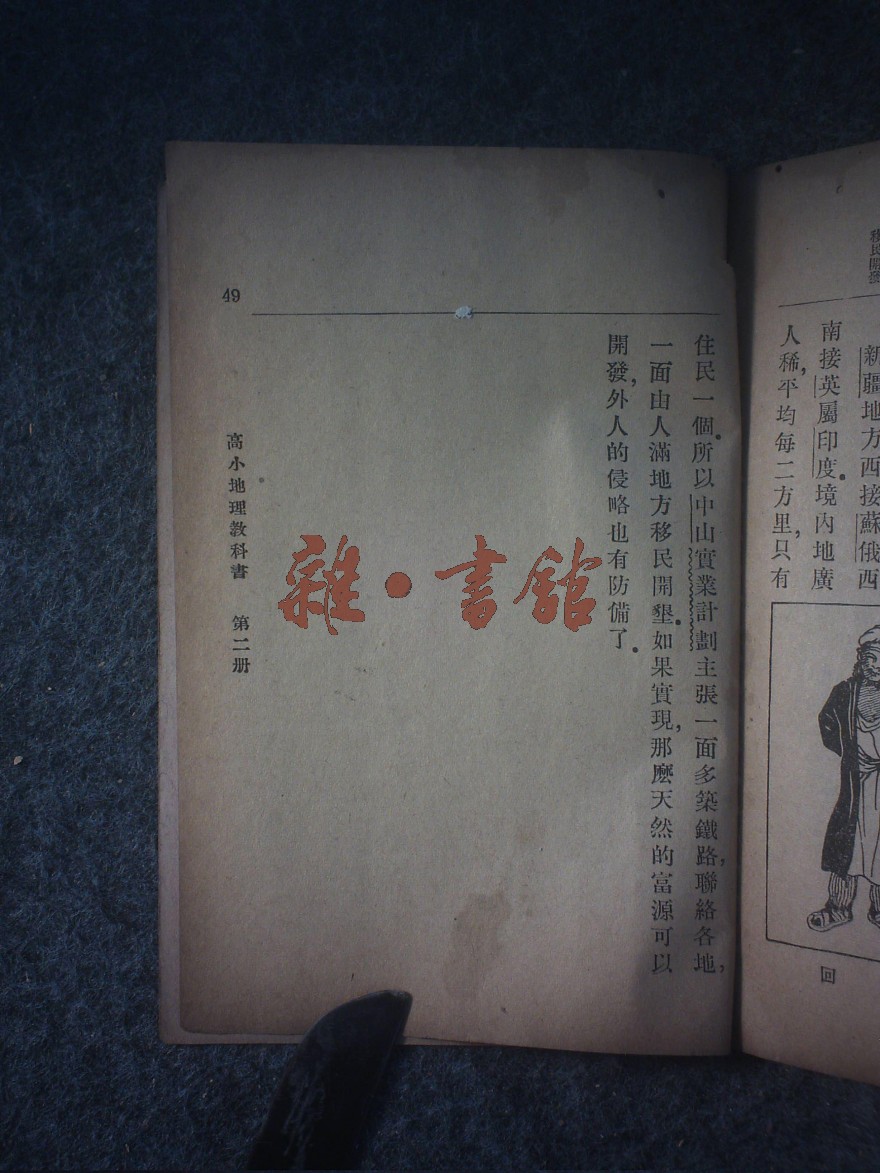 移民開發
新疆地方西接蘇俄西
南接英屬印度．境內地廣
人稀，平均每二方里，只有
回
住民一個．所以中山實業計劃主張一面多築鐵路，聯絡各地，
一面由人滿地方移民開墾．如果實現，那麼天然的富源可以
開發，外人的侵略也有防備了．
49
高小地理教科書 第二册
雜·書館